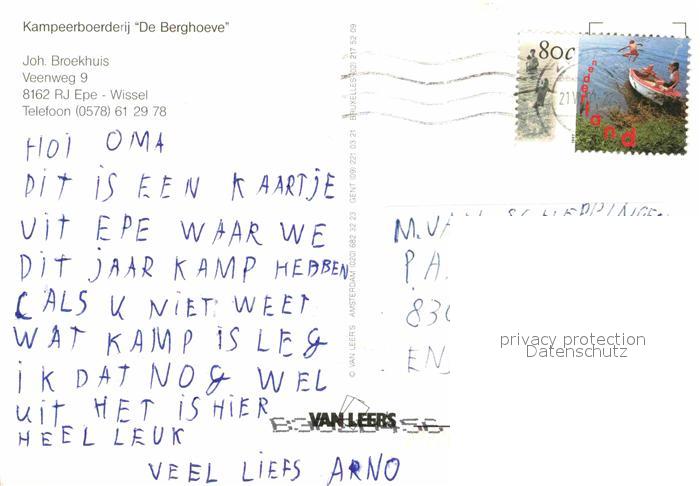 Kampeerboerderij "De Berghoeve"
Joh. Broekhuis
Veenweg 9
8162 RJ Epe - Wissel
Telefoon (0578) 61 29 78
HOI OMA
DIT IS EEN KAARTJE
UIT EPE WAAR WE
DIT JAAR KAMP HEBBEN
(ALS U NIET WEET
WAT KAMP IS LEG
IK DAT NOG WEL
UIT HET IS HIER
HEEL LEUK
VEEL LIEFS ARNO
© VAN LEER'S AMSTERDAM (020) 682 32 23 GENT (09) 221 03 21 BRUXELLES (02) 217 52 09
VAN LEERS
80c
nederland
M.VA
P.A.
830
EN
privacy protection
Datenschutz